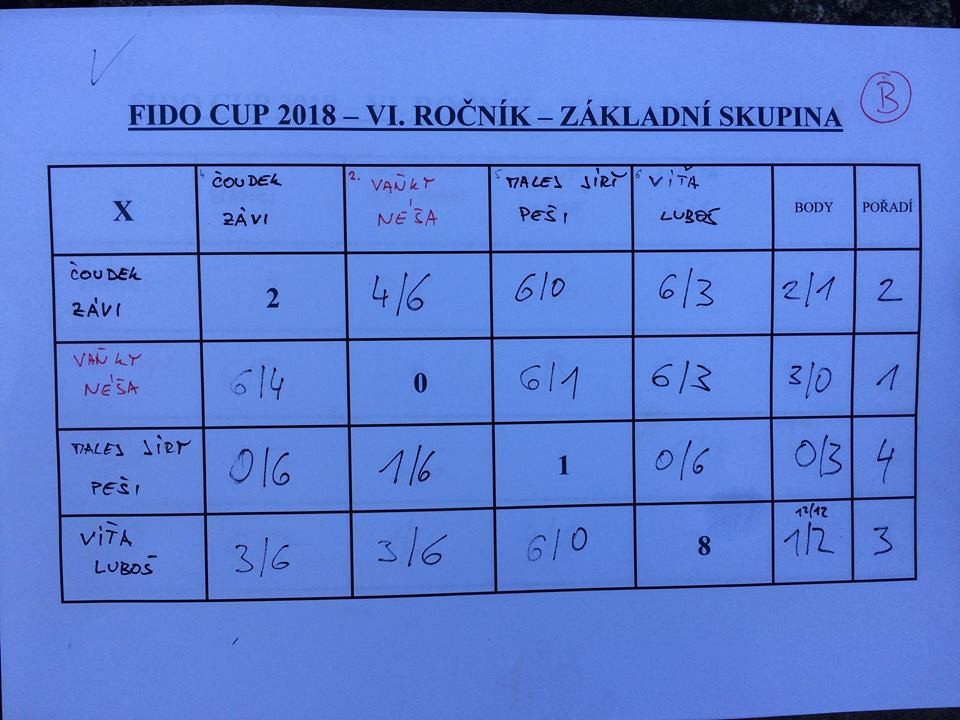 B
FIDO CUP 2018 – VI. ROČNÍK – ZÁKLADNÍ SKUPINA
X
ČOUDEK
ZÁVI
2. VAŇKY
NÉŠA
5 MALEJ JIRT
PEŠI
6 VÍŤA
LUBOŠ
BODY
POŘADÍ
ČOUDEK
ZÁVI
2
4/6
6/0
6/3
2/1
2
VAŇKY
NÉŠA
6/4
0
6/1
6/3
3/0
1
MALEJ JIRT
PEŠI
0/6
1/6
1
0/6
0/3
4
VÍŤA
LUBOŠ
3/6
3/6
6/0
8
12/12
1/2
3